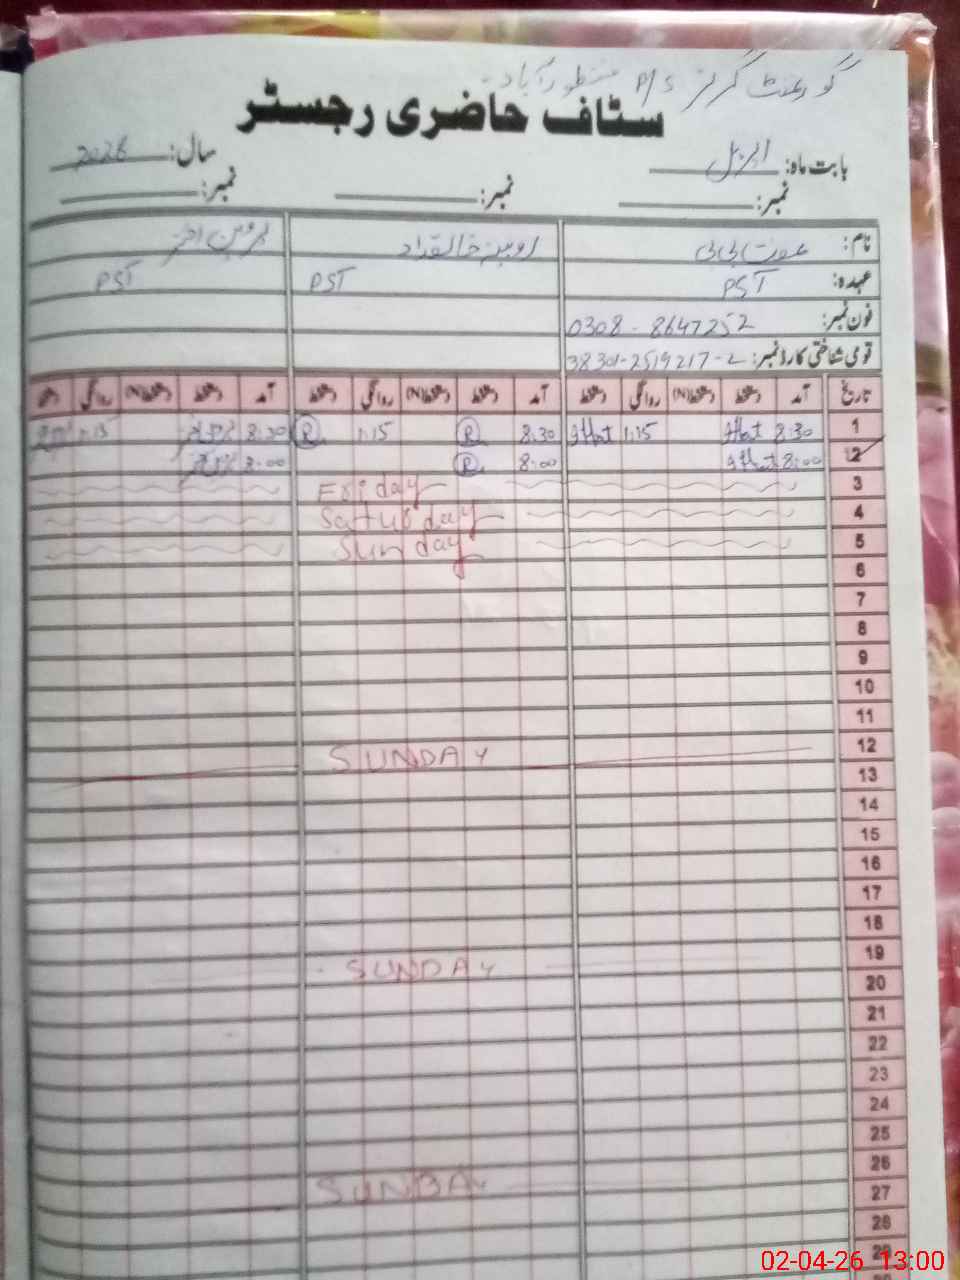 گورنمنٹ گرلز P/S منظور آباد
سٹاف حاضری رجسٹر
بابت ماہ: اپریل سال: 2026
نمبر: نمبر: نمبر:
نام: عفت بی بی روبینہ خالقداد پروین اختر
عہدہ: PST PST PST
فون نمبر: 0308-8647252
قومی شناختی کارڈ نمبر: 38301-2519217-2
تاریخ آمد دستخط دستخط(N) روانگی دستخط آمد دستخط دستخط(N) روانگی دستخط آمد دستخط دستخط(N) روانگی
1 8:30 Iffat 1:15 Iffat 8:30 R 1:15 R 8:30 1:15
2 8:00 Iffat 8:00 R 8:00
3 Friday
4 Saturday
5 Sunday
6
7
8
9
10
11
12 SUNDAY
13
14
15
16
17
18
19 SUNDAY
20
21
22
23
24
25
26 SUNDAY
27
28
29
02-04-26 13:00